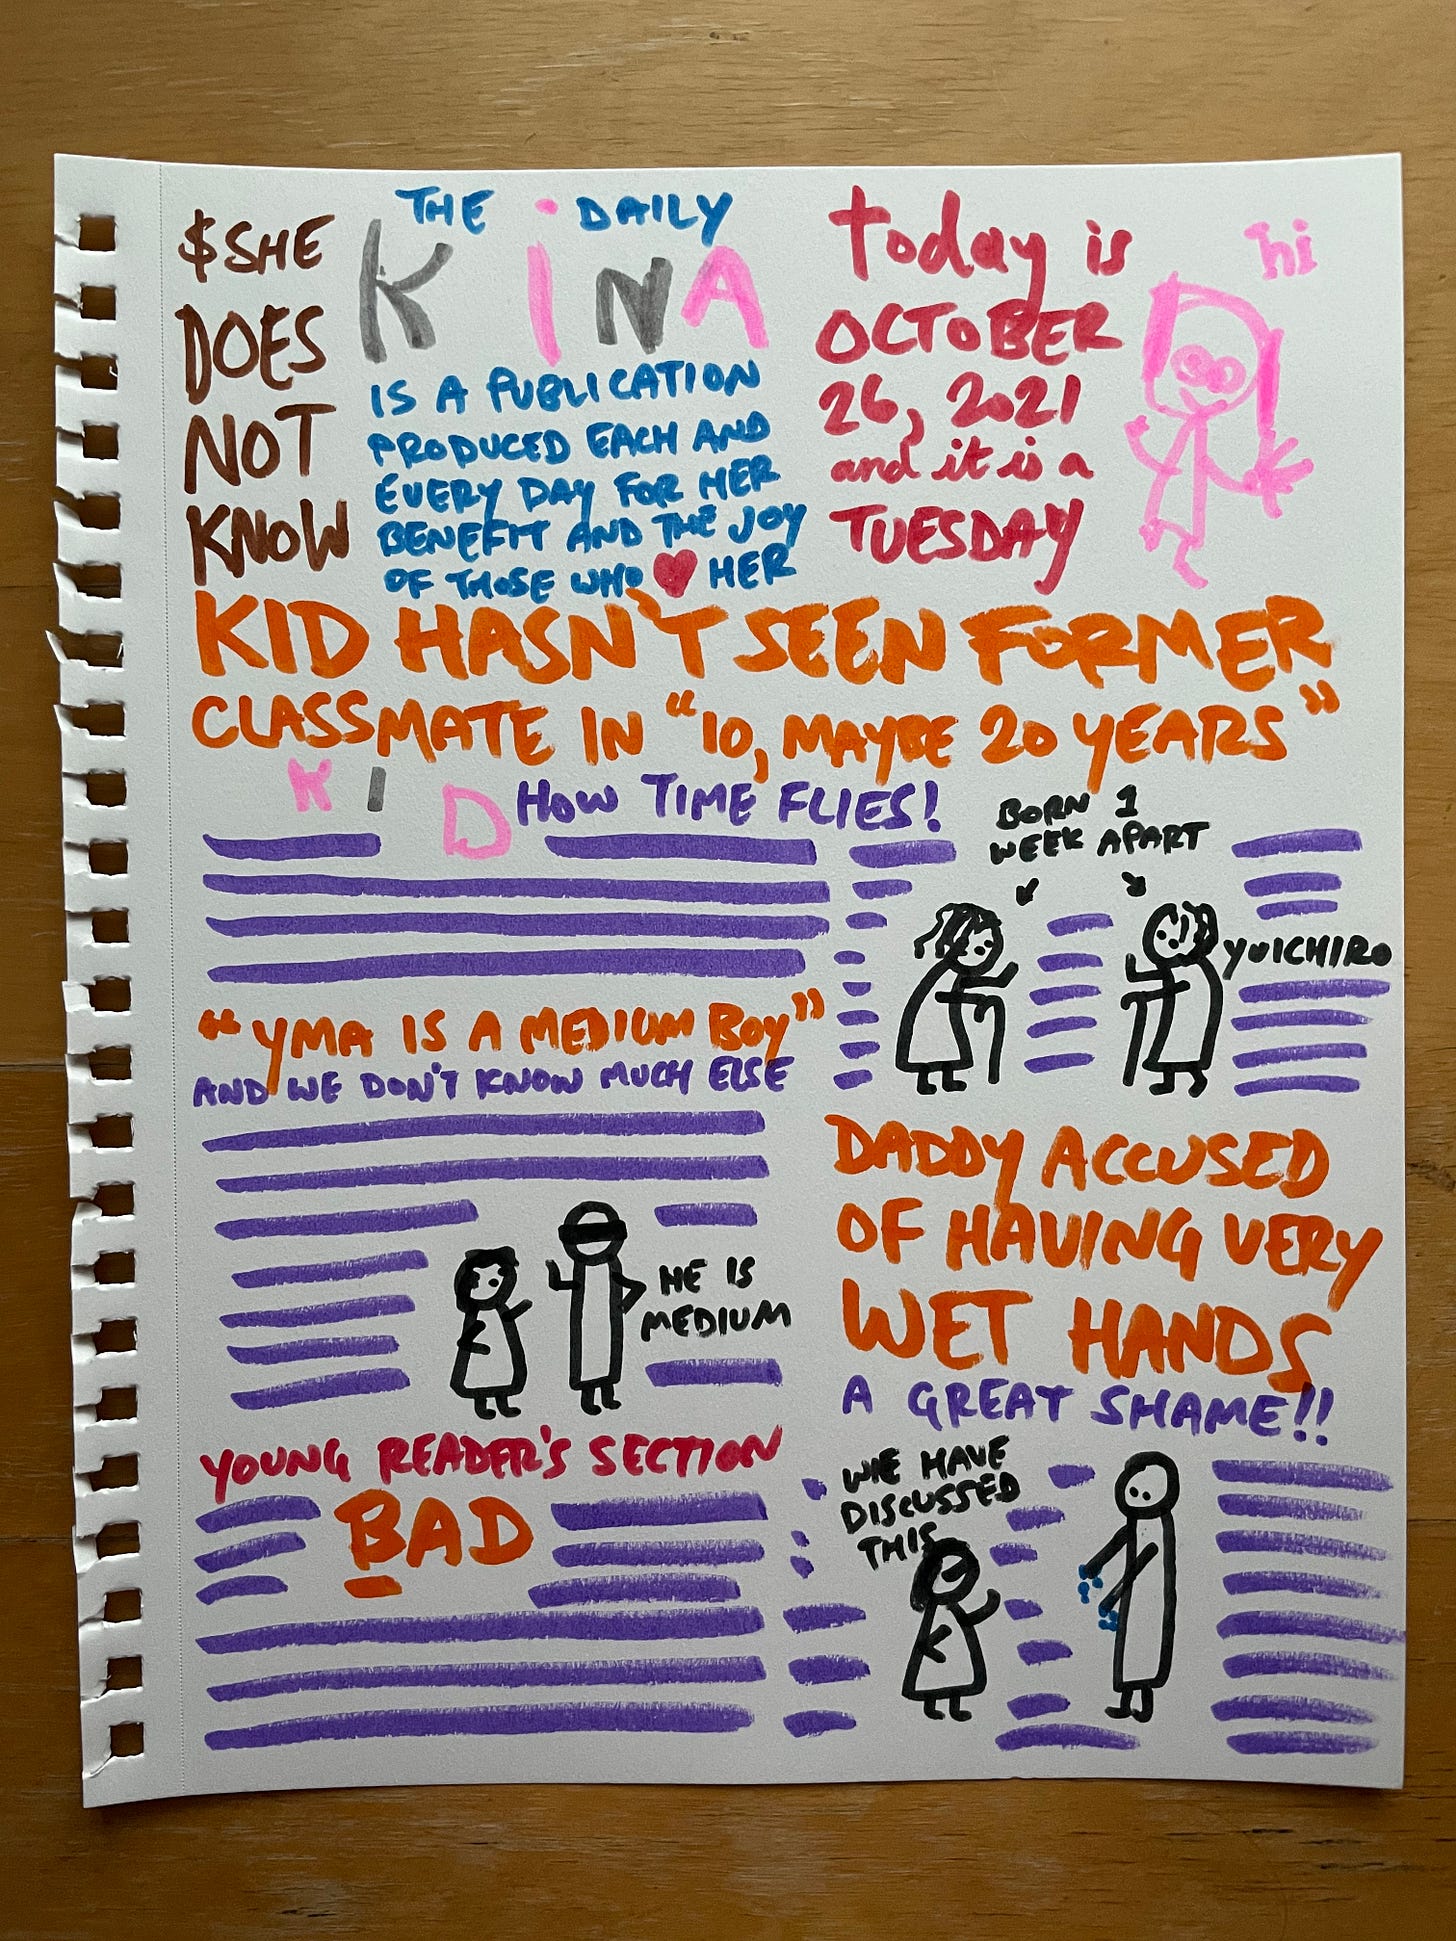 $SHE
DOES
NOT
KNOW
THE DAILY
KINA
IS A PUBLICATION
PRODUCED EACH AND
EVERY DAY FOR HER
BENEFIT AND THE JOY
OF THOSE WHO ♥ HER
today is
OCTOBER
26, 2021
and it is a
TUESDAY
hi
KID HASN'T SEEN FORMER
CLASSMATE IN "10, MAYBE 20 YEARS"
KID
HOW TIME FLIES!
BORN 1
WEEK APART
YUICHIRO
"YMA IS A MEDIUM BOY"
AND WE DON'T KNOW MUCH ELSE
HE IS
MEDIUM
DADDY ACCUSED
OF HAVING VERY
WET HANDS
A GREAT SHAME!!
WE HAVE
DISCUSSED
THIS
YOUNG READER'S SECTION
BAD